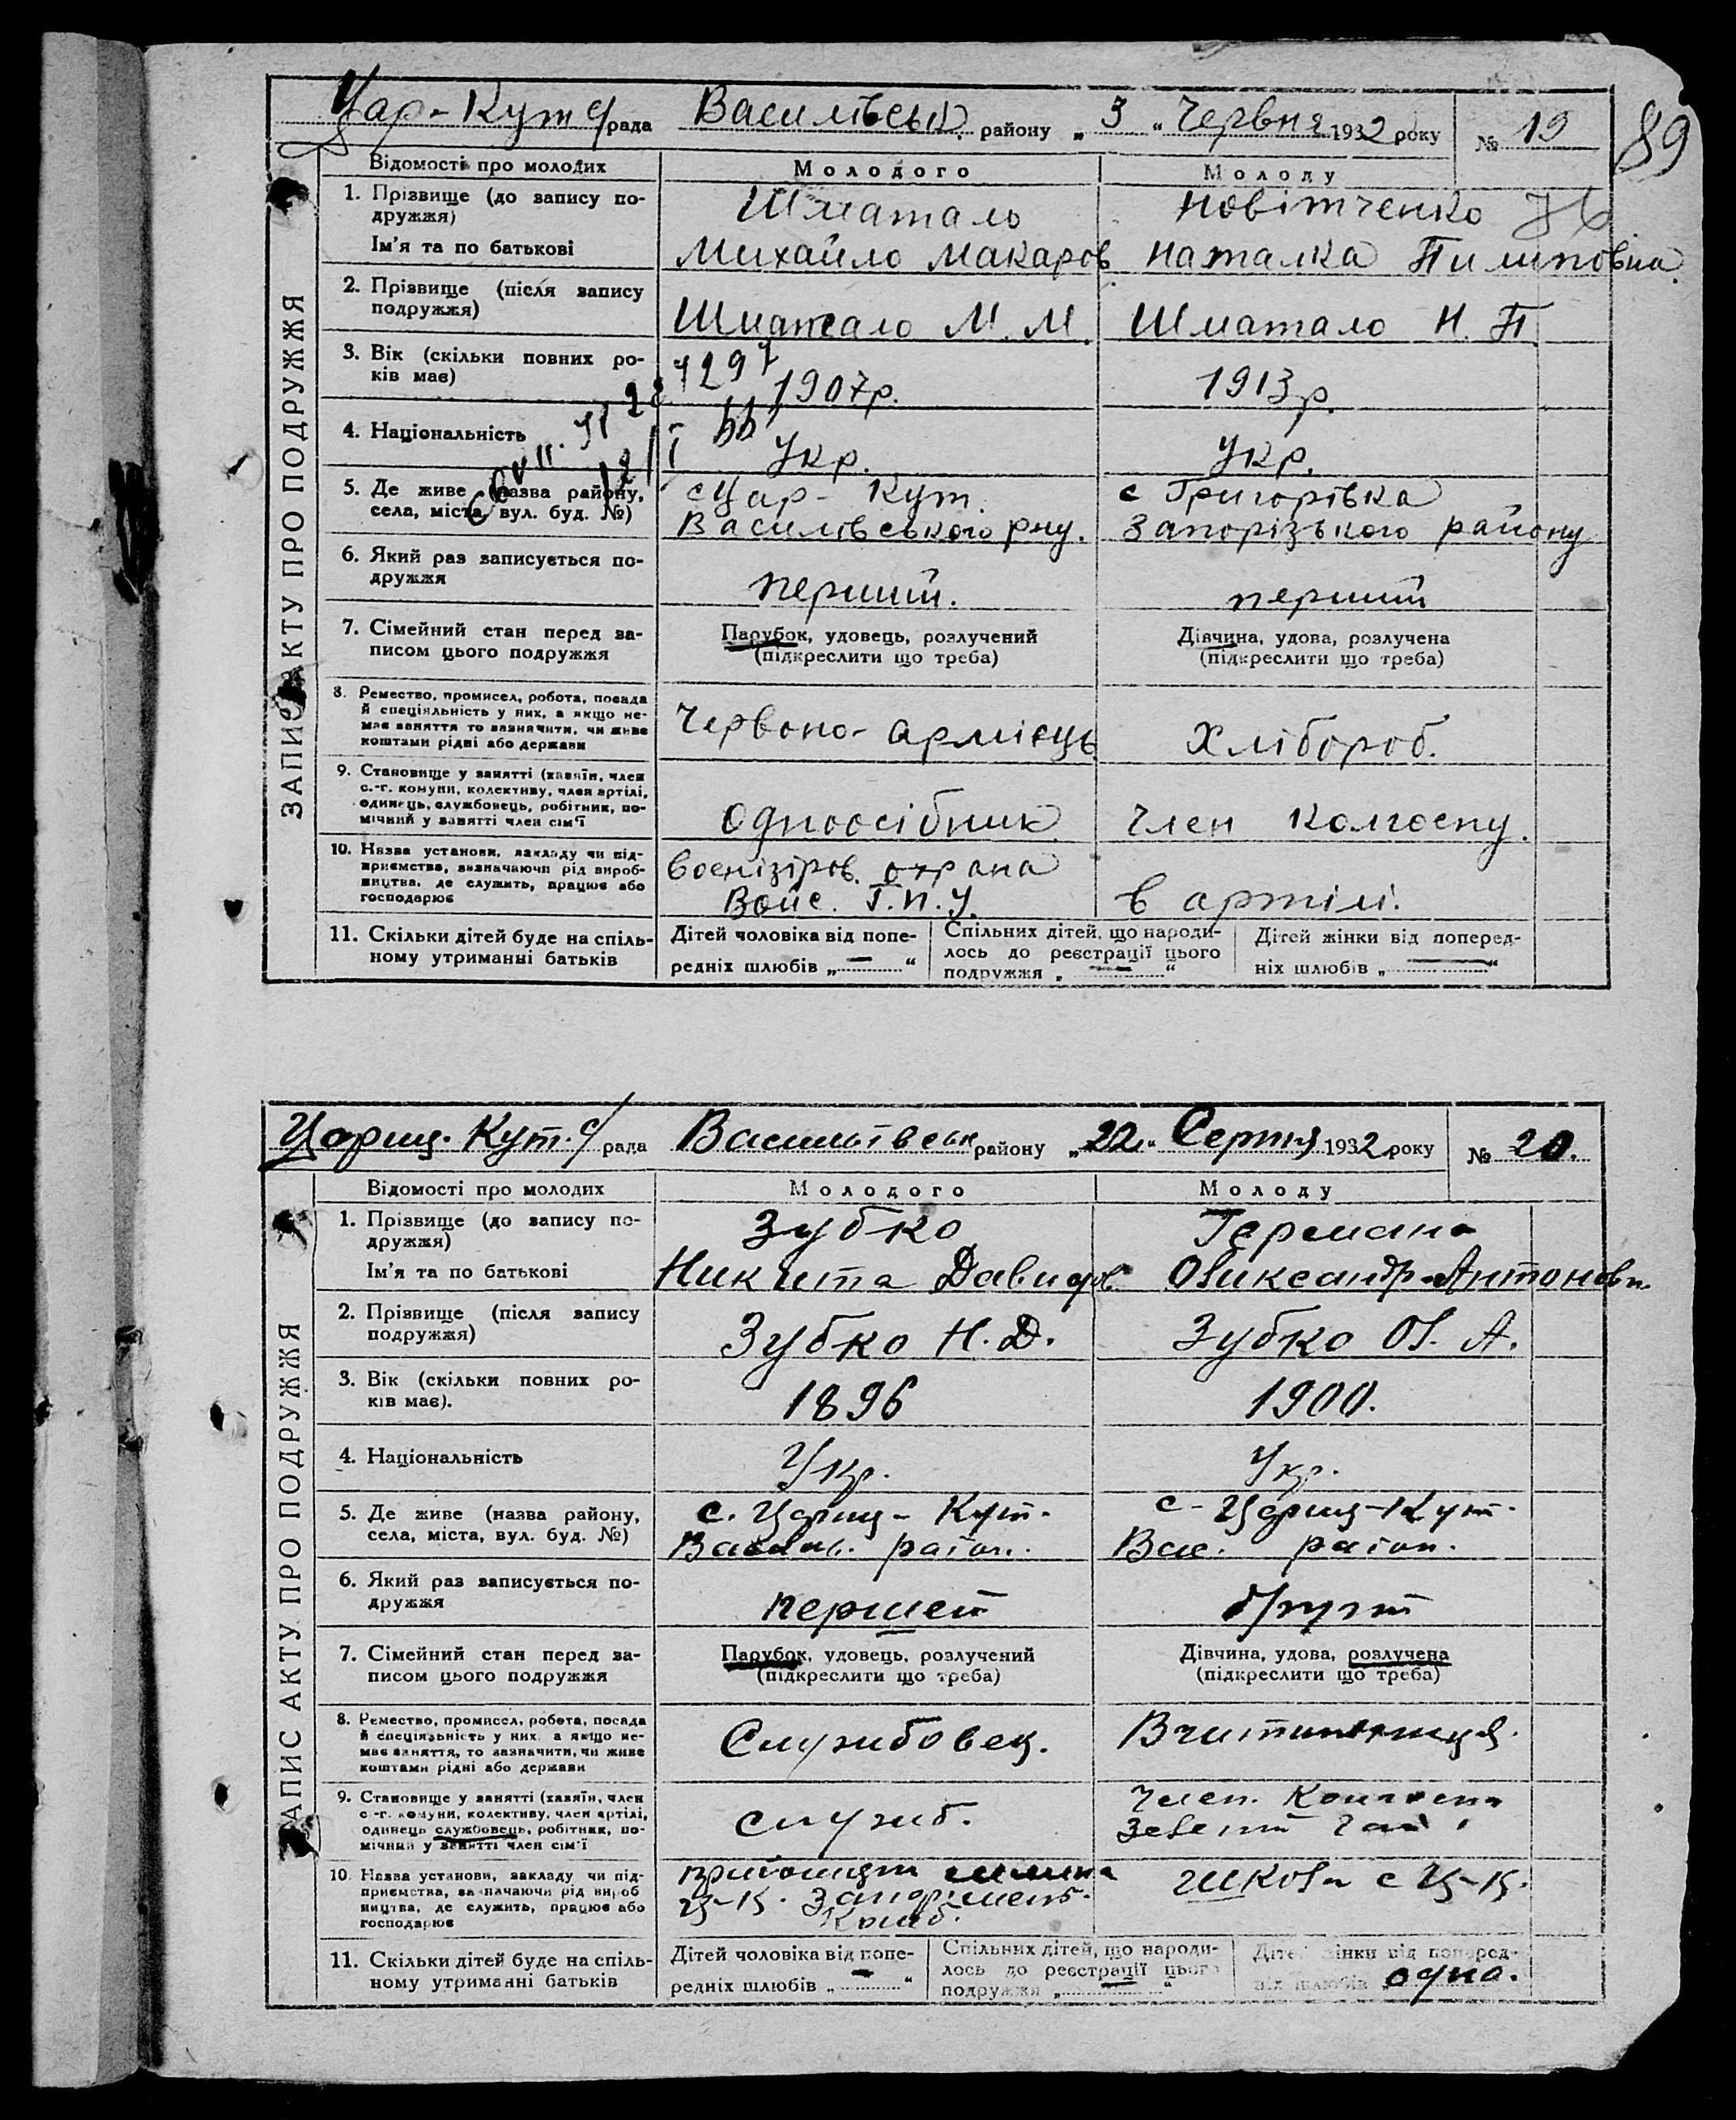 Цар-Кут с/рада Василівськ. району „3“ Червня 1932 року № 19
89
ЗАПИС АКТУ ПРО ПОДРУЖЖЯ
Відомості про молодих Молодого Молоду
1. Прізвище (до запису по- Шматало Новітченко
дружжя)
Ім'я та по батькові Михайло Макаров. Наталка Пилиповна
2. Прізвище (після запису
подружжя) Шматало М. М. Шматало Н. П.
3. Вік (скільки повних ро-
ків має) 1907р. 1913р.
4. Національність Укр. Укр.
5. Де живе (назва району, с Цар-Кут. с Григорівка
села, міста, вул. буд. №) Василівського рну. Запорізького району
6. Який раз записується по-
дружжя перший. перший
7. Сімейний стан перед за- Парубок, удовець, розлучений Дівчина, удова, розлучена
писом цього подружжя (підкреслити що треба) (підкреслити що треба)
8. Ремество, промисел, робота, посада
й спеціяльність у них, а якщо не-
має заняття то зазначити, чи живе Червоно-армієць Хлібороб.
коштами рідні або держави
9. Становище у занятті (хазяїн, член
с.-г. комуни, колективу, член артілі,
одинець, службовець, робітник, по-
мічний у занятті член сім'ї Одноосібник Член колгоспу.
10. Назва установи, закладу чи під- воєнізіров. охрана
приємства, визначаючи рід вироб-
ництва, де служить, працює або Войс. Г.П.У. в артілі.
господарює
11. Скільки дітей буде на спіль- Дітей чоловіка від попе- Спільних дітей, що народи- Дітей жінки від поперед-
ному утриманні батьків редніх шлюбів „—“ лось до реєстрації цього ніх шлюбів „—“
подружжя „—“
Цариц. Кут. с/рада Васильївськ району „22“ Серпня 1932 року № 20.
ЗАПИС АКТУ ПРО ПОДРУЖЖЯ
Відомості про молодих Молодого Молоду
1. Прізвище (до запису по- Зубко Германа
дружжя)
Ім'я та по батькові Никита Давидов. Олександр. Антоновн.
2. Прізвище (після запису
подружжя) Зубко Н. Д. Зубко О. А.
3. Вік (скільки повних ро-
ків має). 1896 1900.
4. Національність Укр. Укр.
5. Де живе (назва району, с. Цариц-Кут. с-Цариц-Кут.
села, міста, вул. буд. №) Васил. район. Вас. район.
6. Який раз записується по-
дружжя другий
7. Сімейний стан перед за- Парубок, удовець, розлучений Дівчина, удова, розлучена
писом цього подружжя (підкреслити що треба) (підкреслити що треба)
8. Ремество, промисел, робота, посада
й спеціяльність у них, а якщо не-
має заняття, то зазначити, чи живе Службовец. Вчителниця.
коштами рідні або держави
9. Становище у занятті (хазяїн, член Член
с.-г. комуни, колективу, член артілі,
одинець, службовець, робітник, по- служб. Зелений Гай
мічний у занятті член сім'ї
10. Назва установи, закладу чи під-
приємства, зазначаючи рід вироб Школа с Ц-К.
ництва, де служить, працює або Ц-К.
господарює Комб.
11. Скільки дітей буде на спіль- Дітей чоловіка від попе- Спільних дітей, що народи- Дітей жінки від поперед-
ному утриманні батьків редніх шлюбів „—“ лось до реєстрації цього ніх шлюбів „одно.
подружжя „—“